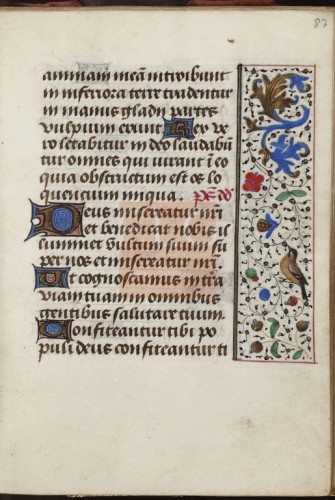 87
animam meā introibunt
in inferiora terre tradentur
in manus gladij partes
vulpium erunt Rex ve
ro letabitur in deo laudabūn
tur omnes qui iurant ī eo
quia obstructum est os lo
quentium iniqua. ps̄ dd̄
Deus misereatur nr̄i
et benedicat nobis il
luminet vultum suum su
per nos et misereatur nr̄i
Ut cognoscamus in tr̄a
viam tuam in omnibus
gentibus salutare tuum
Confiteantur tibi po
puli deus confiteantur ti